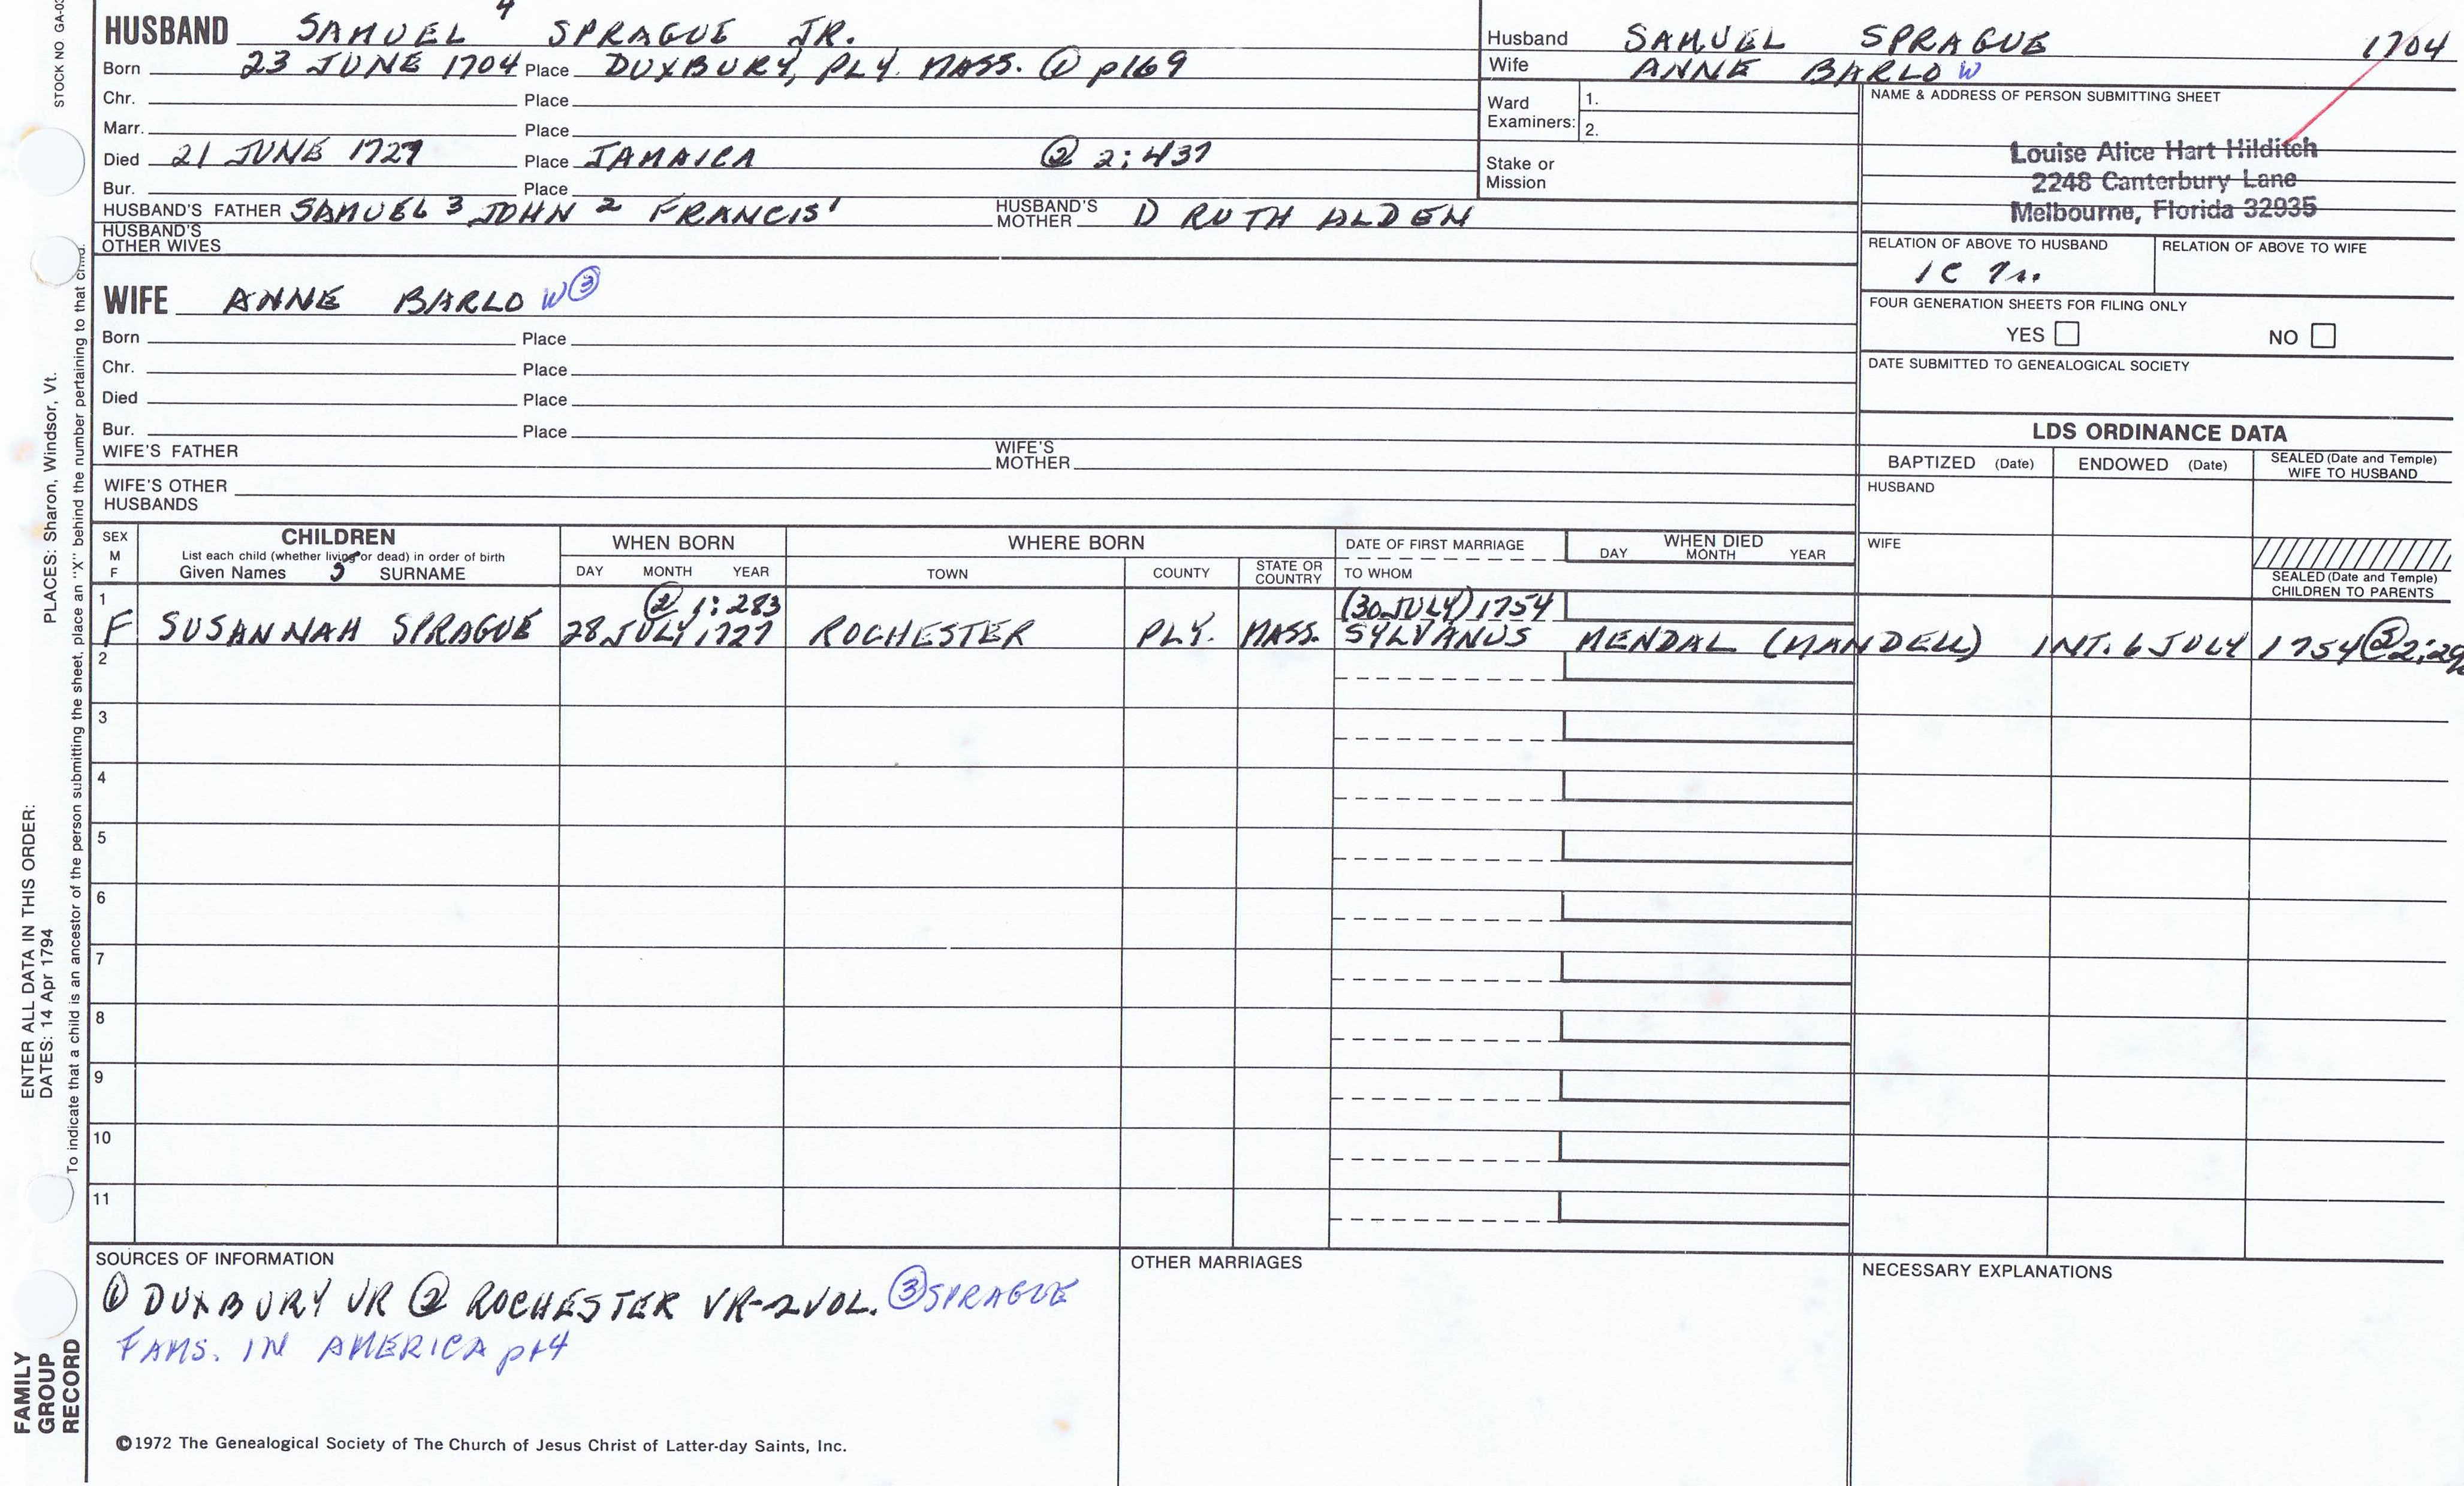 STOCK NO GA-03
4
HUSBAND SAMUEL SPRAGUE JR.
Born 23 JUNE 1704 Place DUXBURY, PLY. MASS. ① p169
Chr. Place
Marr. Place
Died 21 JUNE 1727 Place JAMAICA ② 2:437
Bur. Place
HUSBAND'S FATHER SAMUEL 3 JOHN 2 FRANCIS 1 HUSBAND'S MOTHER D RUTH ALDEN
HUSBAND'S OTHER WIVES
Husband SAMUEL SPRAGUE 1704
Wife ANNE BARLOW
Ward Examiners: 1.
2.
Stake or Mission
NAME & ADDRESS OF PERSON SUBMITTING SHEET
Louise Alice Hart Hilditch
2248 Canterbury Lane
Melbourne, Florida 32935
RELATION OF ABOVE TO HUSBAND RELATION OF ABOVE TO WIFE
1C
FOUR GENERATION SHEETS FOR FILING ONLY
YES NO
DATE SUBMITTED TO GENEALOGICAL SOCIETY
WIFE ANNE BARLOW ③
Born Place
Chr. Place
Died Place
Bur. Place
WIFE'S FATHER WIFE'S MOTHER
WIFE'S OTHER HUSBANDS
LDS ORDINANCE DATA
BAPTIZED (Date) ENDOWED (Date) SEALED (Date and Temple) WIFE TO HUSBAND
HUSBAND
WIFE
SEALED (Date and Temple) CHILDREN TO PARENTS
SEX M F
CHILDREN
List each child (whether living or dead) in order of birth
Given Names 5 SURNAME
WHEN BORN
DAY MONTH YEAR
WHERE BORN
TOWN COUNTY STATE OR COUNTRY
DATE OF FIRST MARRIAGE
TO WHOM
WHEN DIED
DAY MONTH YEAR
1 ② 1:283 (30 JULY) 1754
F SUSANNAH SPRAGUE 28 JULY 1727 ROCHESTER PLY. MASS. SYLVANUS MENDAL (MANDELL) INT. 6 JULY 1754 ② 2:29
2
3
4
5
6
7
8
9
10
11
SOURCES OF INFORMATION
① DUXBURY VR ② ROCHESTER VR-2VOL. ③ SPRAGUE
FAMS. IN AMERICA pt4
OTHER MARRIAGES
NECESSARY EXPLANATIONS
©1972 The Genealogical Society of The Church of Jesus Christ of Latter-day Saints, Inc.
FAMILY
GROUP
RECORD
ENTER ALL DATA IN THIS ORDER:
DATES: 14 Apr 1794 PLACES: Sharon, Windsor, Vt.
To indicate that a child is an ancestor of the person submitting the sheet, place an "X" behind the number pertaining to that child.